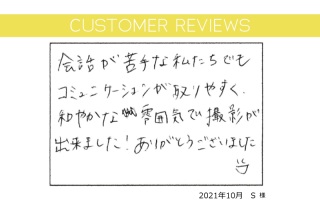 CUSTOMER REVIEWS
会話が苦手な私たちでも
コミュニケーションが取りやすく、
和やかな雰囲気で撮影が
出来ました！ありがとうございました
2021年10月 S 様